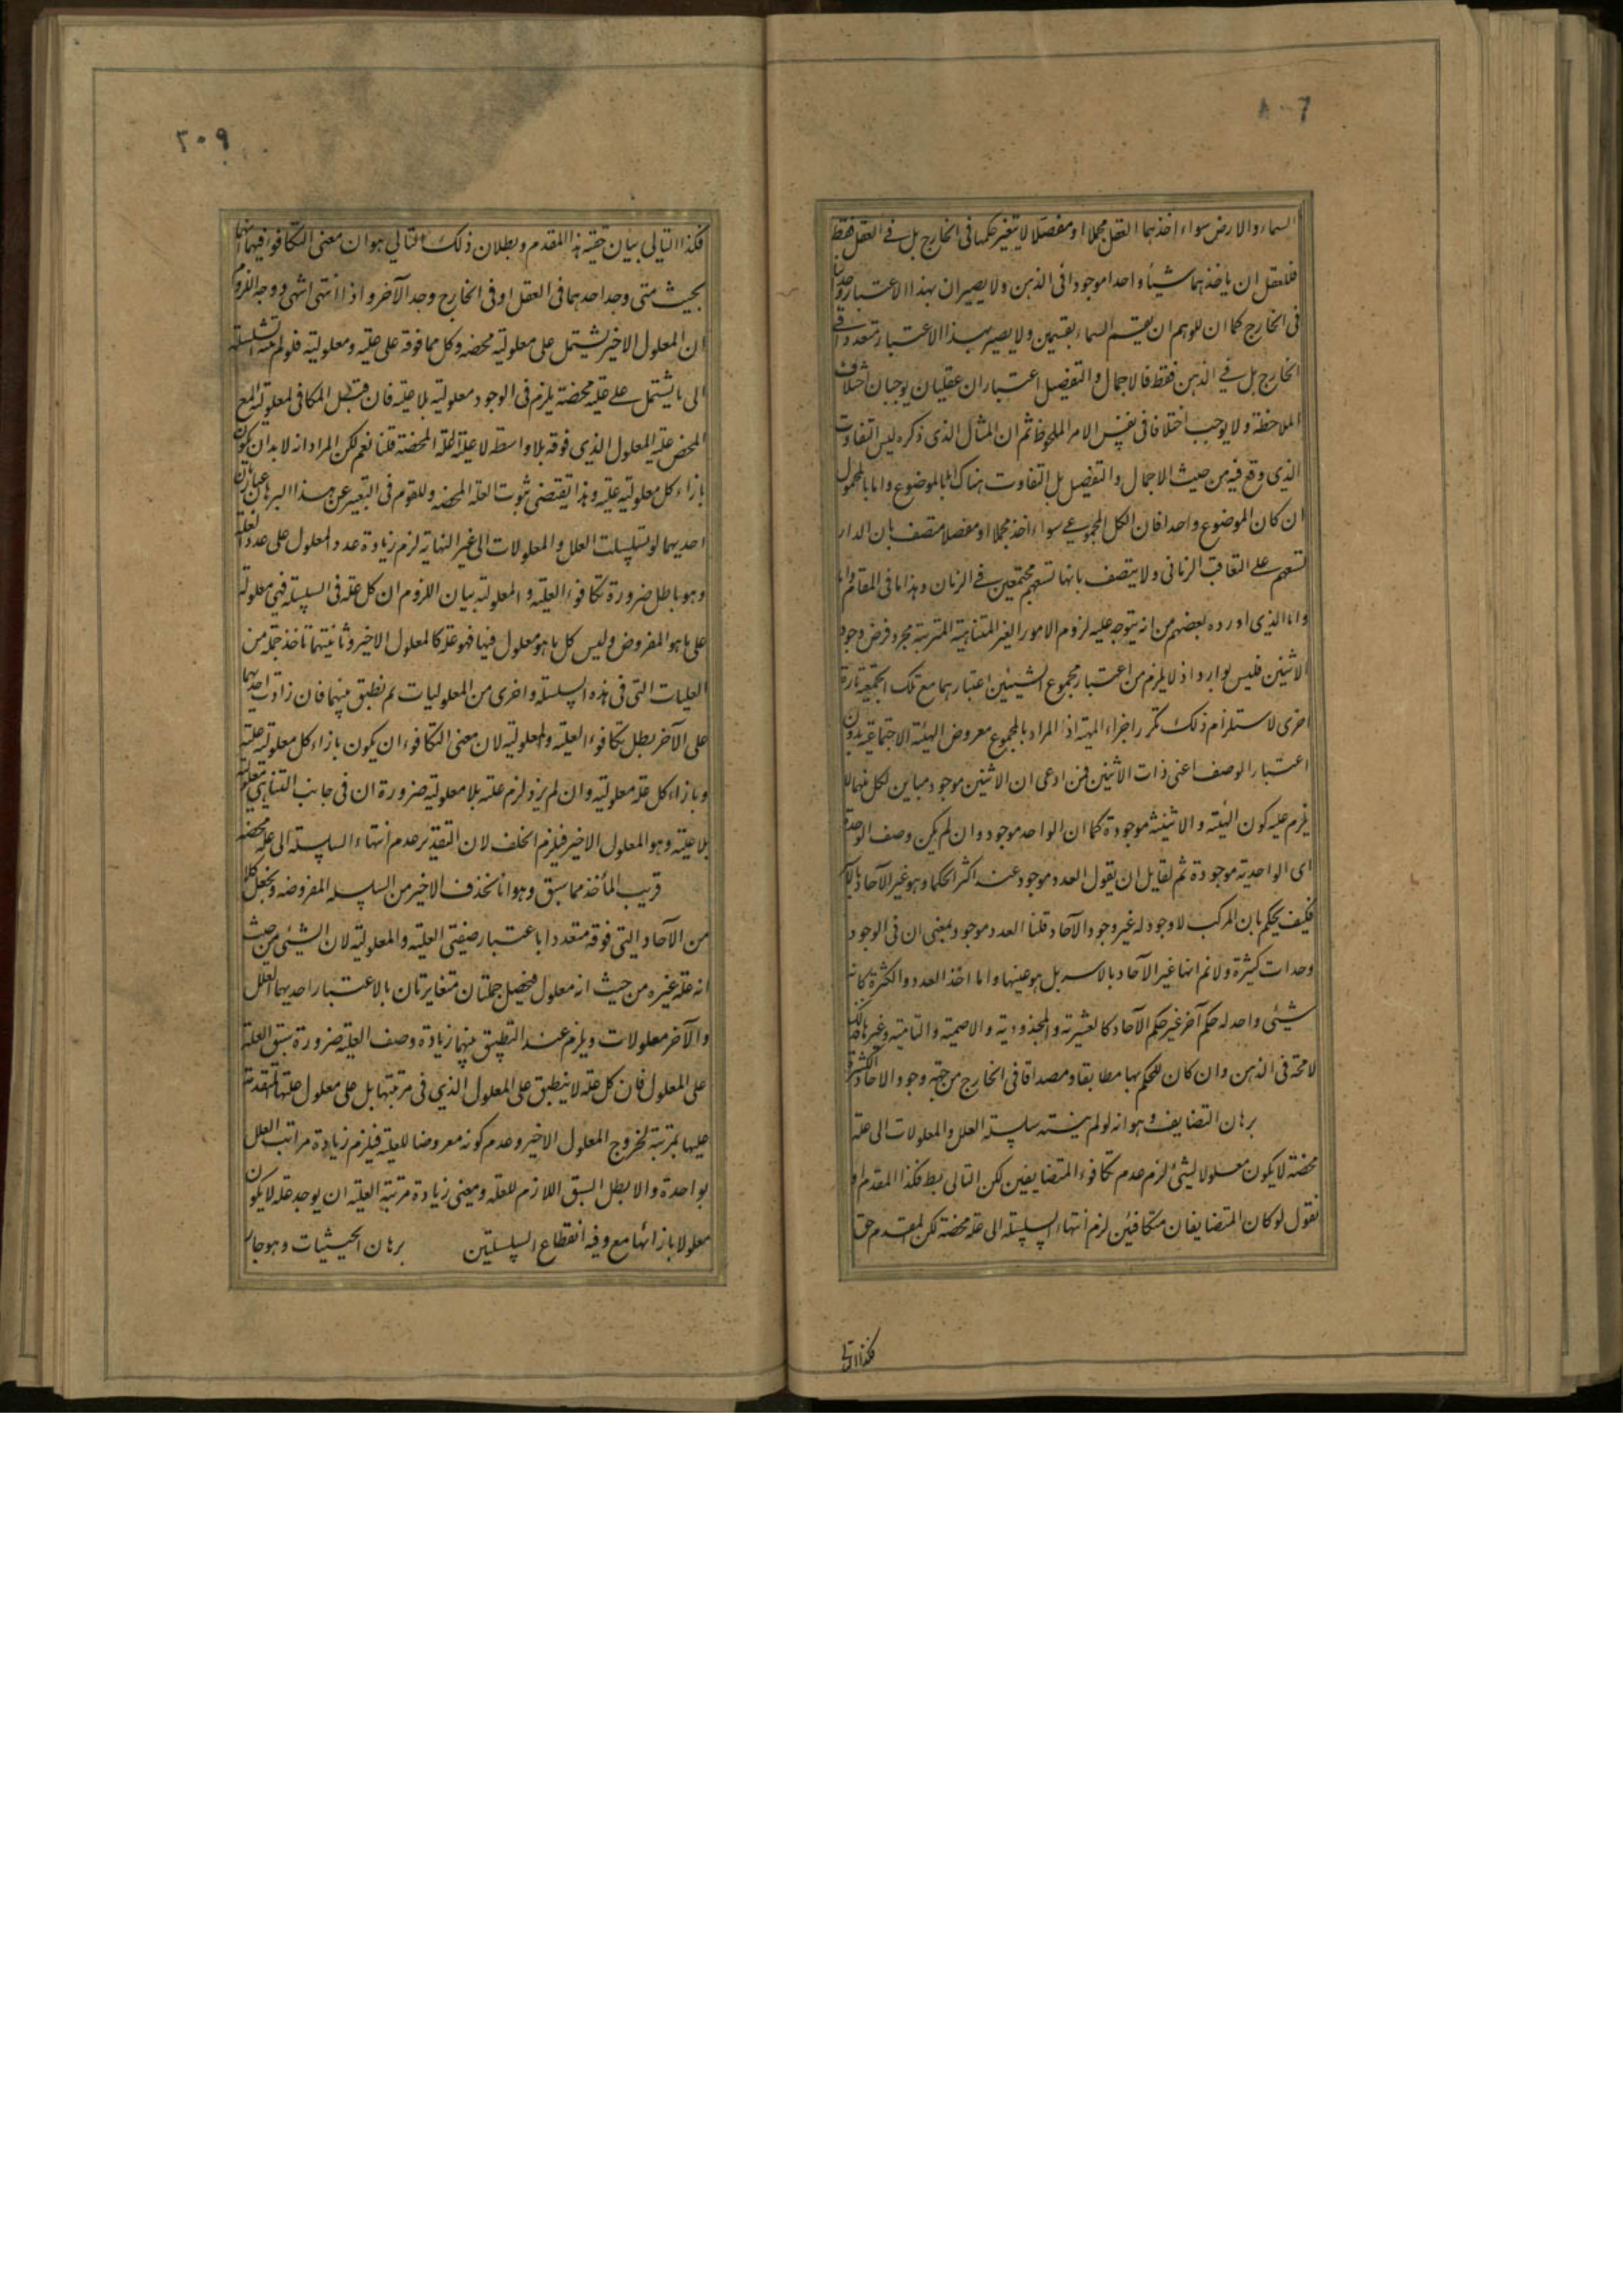 السماء والارض سواء اخذهما العقل مجملا او مفصلا لا يتغير حكمها فى الخارج بل فى العقل فقط
فللعقل ان ياخذهما شيئا واحدا موجودا فى الذهن ولا يصيران بهذا الاعتبار واحدا
فى الخارج كما ان للوهم ان يقسم السماء بقسمين ولا يصير بهذا الاعتبار متعددا فى
الخارج بل فى الذهن فقط فالاجمال والتفصيل اعتباران عقليان يوجبان اختلاف
الملاحظة ولا يوجب اختلافا فى نفس الامر الملحوظ ثم ان المثال الذى ذكره ليس التفاوت
الذى وقع فيه من حيث الاجمال والتفصيل بل التفاوت هناك اما بالموضوع واما بالمحمول
ان كان الموضوع واحدا فان الكل المجموعى سواء اخذ مجملا او مفصلا متصف بان الدار
تسعهم على التعاقب الزمانى ولا يتصف بانها تسعهم مجتمعين فى الزمان وهذا ما فى المقام
واما الذى اورده بعضهم من انه يتوجه عليه لزوم الامور الغير المتناهية المترتبة بمجرد فرض وجود
الاثنين فليس بوارد اذ لا يلزم من اعتبار مجموع الشيئين اعتبارهما مع تلك الجمعية تارة
اخرى لاستلزام ذلك تكرر اجزاء المهية اذ المراد بالمجموع معروض الهيئة الاجتماعية بدون
اعتبار الوصف اعنى ذات الاثنين فمن ادعى ان الاثنين موجود مباين لكل منهما لا
يلزم عليه كون الهيئة والاثنينية موجودة كما ان الواحد موجود وان لم يكن وصف الوحدة
اى الواحدية موجودة ثم لقايل ان يقول العدد موجود عند اكثر الحكماء وهو غير الآحاد بالاسر
فكيف يحكم بان المركب لا وجود له غير وجود الآحاد قلنا العدد موجود بمعنى ان فى الوجود
وحدات كثيرة ولا نم انها غير الآحاد بالاسر بل هو عينها واما اخذ العدد والكثرة كانه
شيئى واحد له حكم آخر غير حكم الآحاد كالعشرية والمجذودية والاصمية والتامية وغيرها
لا محة فى الذهن وان كان للحكم بها مطابقا ومصداقا فى الخارج من جهة وجود الاحاد الكثيرة
برهان التضايف وهو انه لو لم ينته سلسلة العلل والمعلولات الى علة
محضة لا يكون معلولا لشيئ لزم عدم تكافوء المتضايفين لكن التالى بط فكذا المقدم او
نقول لو كان المتضايفان متكافيين لزم انتهاء السلسلة الى علة محضة لكن المقدم حق
فكذا التا
٣٠٩
فكذا التالى بيان حقية هذا المقدم وبطلان ذلك التالى هو ان معنى التكافوء فيهما انهما
بحيث متى وجد احدهما فى العقل او فى الخارج وجد الآخر واذا انتهى انتهى ووجه اللزوم
ان المعلول الاخير يشتمل على معلولية محضه وكل مما فوقه على علية ومعلولية فلو لم تنته السلسلة
الى ما يشتمل على علية محضة يلزم فى الوجود معلولية بلا علية فان قيل المكافى لمعلولية المع
المحض علية المعلول الذى فوقه بلا واسطة لا علية العلة المحضة قلنا نعم لكن المراد انه لا بد ان يكون
بازاء كل معلولية علية وهذا يقتضى ثبوت العلة المحضه وللقوم فى التعبير عن هذا البرهان عبارتان
احديهما لو تسلسلت العلل والمعلولات الى غير النهاية لزم زيادة عدد المعلول على عدد العلة
وهو باطل ضرورة تكافوء العلية والمعلولية بيان اللزوم ان كل علة فى السلسلة فهى معلولة
على ما هو المفروض وليس كل ما هو معلول فيها فهو علة كالمعلول الاخير وثانيتهما تاخذ جملة من
العليات التى فى هذه السلسلة واخرى من المعلوليات ثم نطبق بينهما فان زادت احديهما
على الآخر بطل تكافوء العلية والمعلولية لان معنى التكافوء ان يكون بازاء كل معلولية علية
وبازاء كل علة معلولية وان لم يزد لزم علية بلا معلولية ضرورة ان فى جانب التناهى معلولية
بلا علية وهو المعلول الاخير فيلزم الخلف لان التقدير عدم انتهاء السلسلة الى علة محضة
قريب المأخذ مما سبق وهو انا نحذف الاخير من السلسلة المفروضه ونجعل كلا
من الآحاد التى فوقه متعددا باعتبار صفتى العلية والمعلولية لان الشيئى من حيث
انه علة غيره من حيث انه معلول فيحصل جملتان متغايرتان بالاعتبار احديهما العلل
والآخر معلولات ويلزم عند التطبيق بينهما زيادة وصف العلية ضرورة سبق العلة
على المعلول فان كل علة لا ينطبق على المعلول الذى فى مرتبتها بل على معلول علتها المتقدمة
عليها بمرتبة لخروج المعلول الاخير وعدم كونه معروضا للعلية فيلزم زيادة مراتب العلل
بواحدة والا بطل السبق اللازم للعلة ومعنى زيادة مرتبة العلية ان يوجد علة لا يكون
معلولا بازائها مع وفيه انقطاع السلسلتين برهان الحيثيات وهو جار